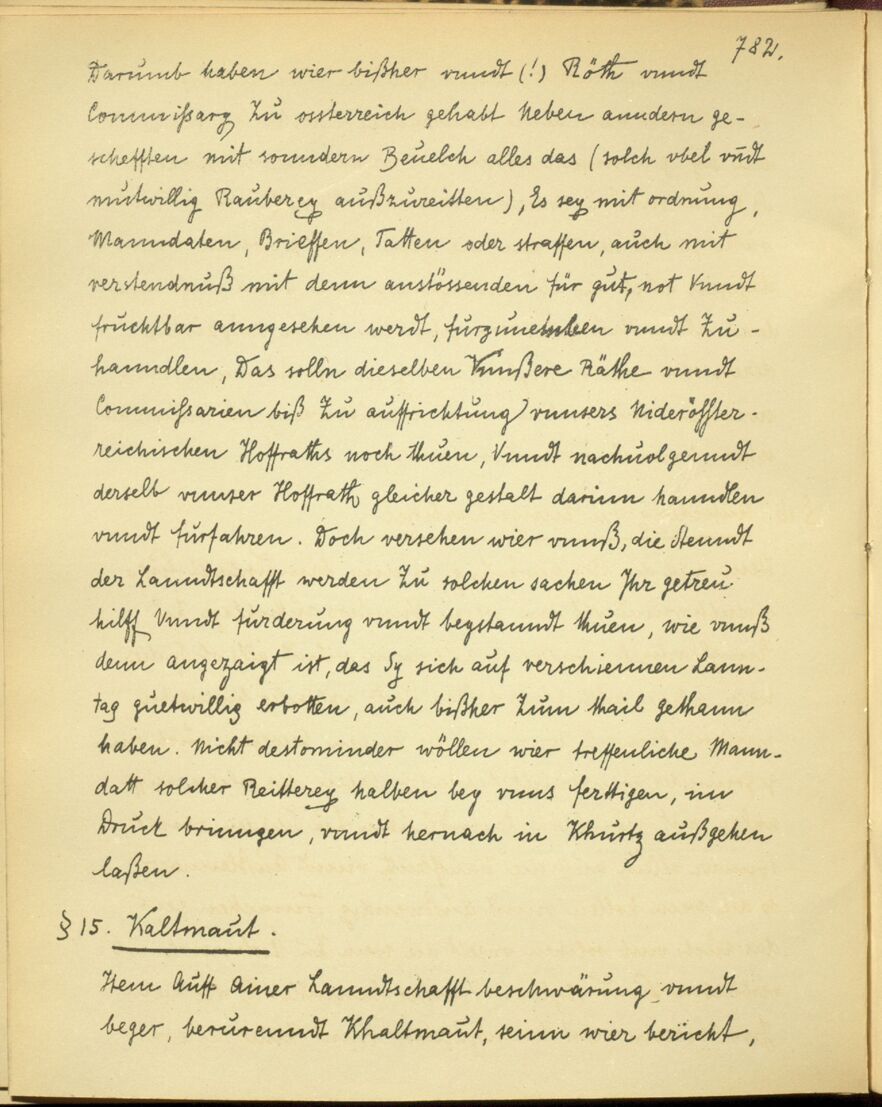 782.
Darumb haben wier bißher vundt (!) Röth vundt
Commißarg Zu ossterreich gehabt Neben anndern ge-
schefften mit sonndern Beuelch alles das (solch vbel vndt
mutwillig Rauberey außzureitten), Es sey mit ordnung,
Manndaten, Brieffen, Tatten oder straffen, auch mit
verstendnuß mit denn anstössenden für gut, not Vnndt
fruchtbar anngesehen werdt, furzunemben vnndt Zu-
hanndlen, Das solln dieselben Vnnßere Räthe vnndt
Commißarien biß Zu auffrichtung vnnsers Nideröster-
reichischen Hoffraths noch thuen, Vnndt nachuolgenndt
derselb vnnser Hoffrath gleicher gestalt darinn hanndlen
vnndt furfahren. Doch versehen wier vnnß, die Stenndt
der Lanndtschafft werden Zu solchen sachen Ihr getreu
hilff Vnndt furderung vnndt beystanndt thuen, wie vnnß
denn angezaigt ist, das Sy sich auf verschiennen Lann-
tag guetwillig erbotten, auch bißher Zum thail gethann
haben. Nicht destominder wöllen wier treffenliche Mann-
datt solcher Reitterey halben bey vnns ferttigen, im
Druck brinngen, vnndt hernach in Khurtz außgehen
laßen.
§ 15. Kaltmaut.
Item Auff Ainer Lanndtschafft beschwärung vnndt
beger, berurenndt Khaltmaut, seinn wier bericht,